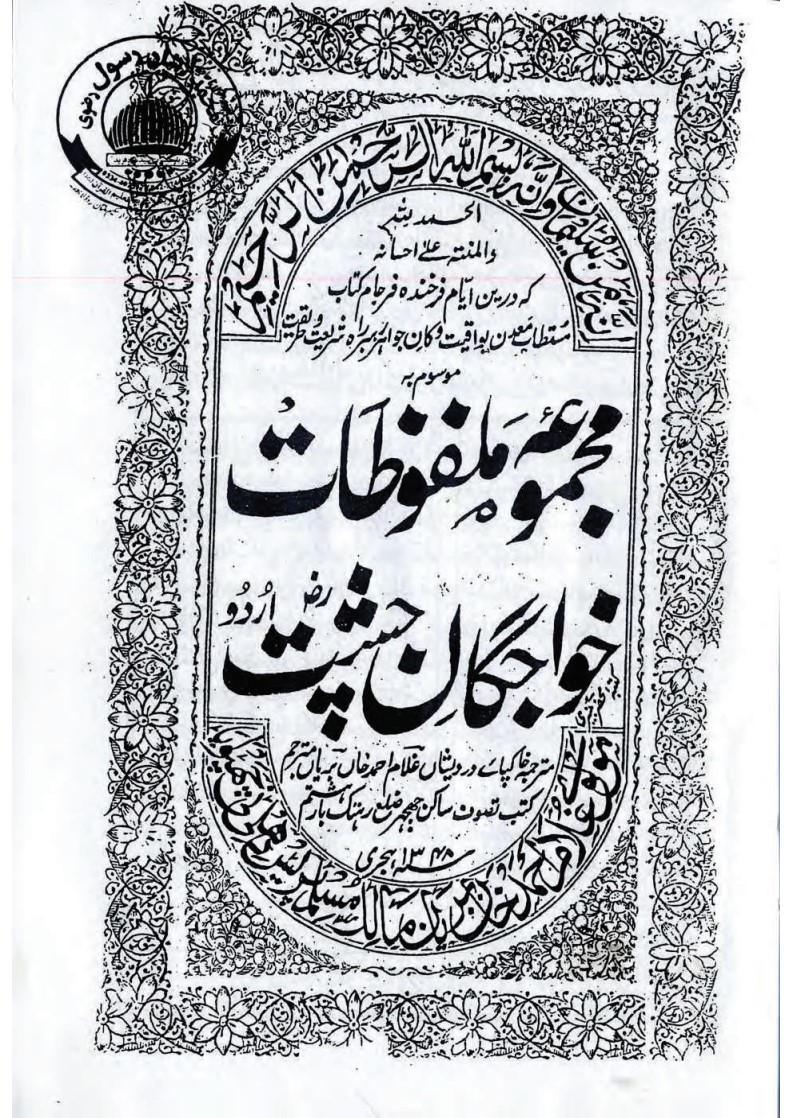 انہ من سلیمان وانہ بسم اللہ الرحمن الرحیم
الحمد للہ
والمنتہ علےٰ احسانہ
کہ درین ایام فرخندہ فرجام کتاب
مستطاب معدن یواقیت وکان جواہر رہبر راہ شریعت وطریقت
موسوم بہ
مجموعہ ملفوظات
خواجگان چشت رض اُردُو
مترجمہ خاکپائے درویشاں غلام احمد خاں بریاں مترجم
کتب تصوف ساکن جھجر ضلع رہتک بار ہشتم
سنہ ۱۳۴۸ ہجری
غلام احمد خان بریان مالک مسلم پریس دھلی چھپوایا
رسول رضوی